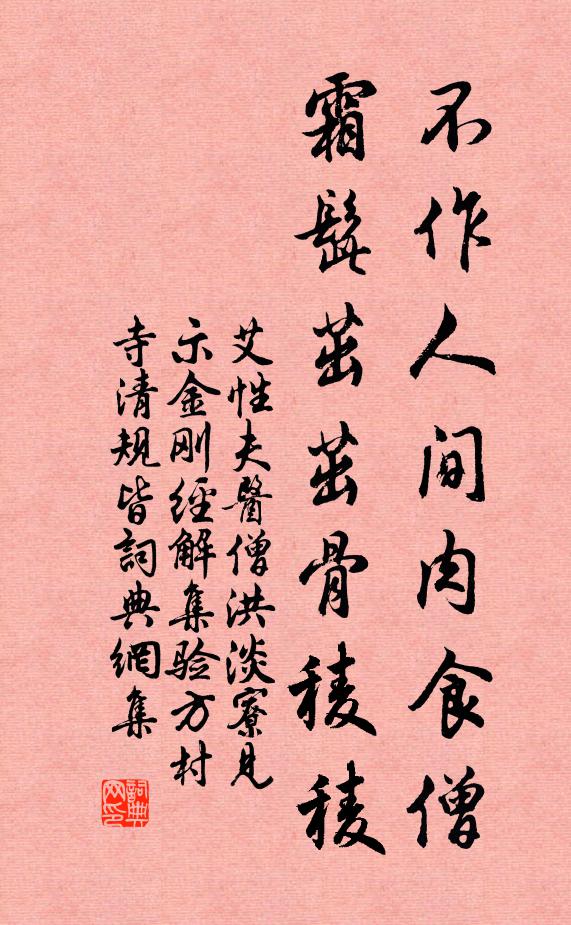 不作人间肉食僧
霜髭茁茁骨稜稜
艾性夫醫僧洪淡寮見
示金刚經解集验方村
寺清規皆詞典網集
詞典网印